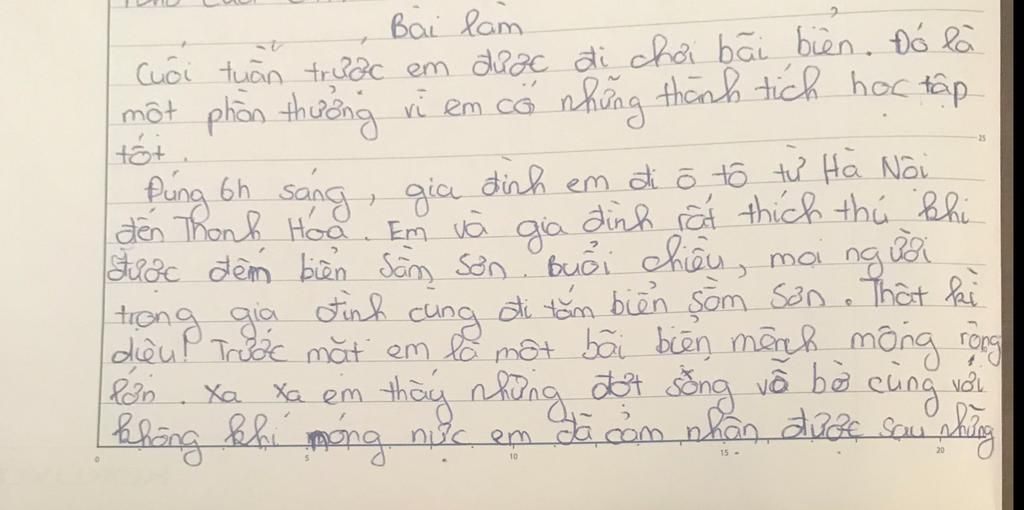 Bài làm
Cuối tuần trước em được đi chơi bãi biển. Đó là
một phần thưởng vì em có những thành tích học tập
tốt.
Đúng 6h sáng, gia đình em đi ô tô từ Hà Nội
đến Thanh Hóa. Em và gia đình rất thích thú khi
được đếm biển Sầm Sơn. Buổi chiều, mọi người
trong gia đình cùng đi tắm biển Sầm Sơn. Thật kì
diệu! Trước mắt em là một bãi biển mênh mông rộng
lớn. Xa xa em thấy những đợt sóng vỗ bờ cùng với
không khí nóng nực em đã cảm nhận được sau những
25
0 5 10 15 20